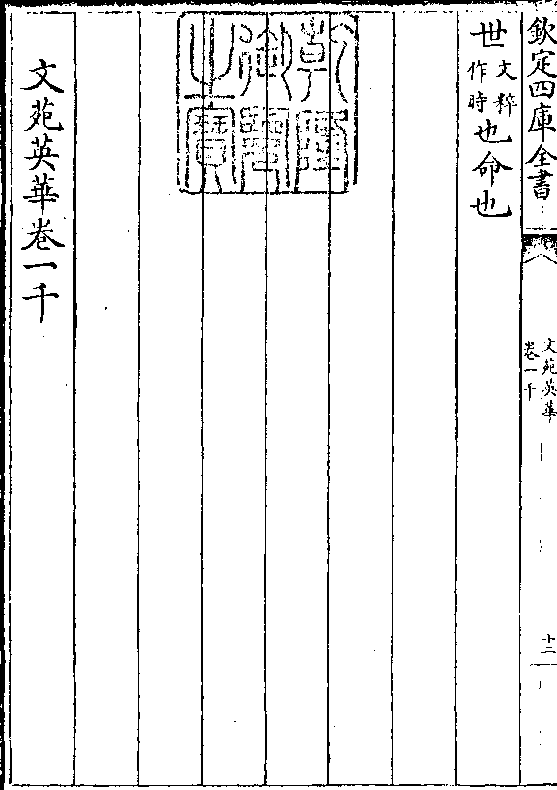 欽定四庫全書
文苑英華
卷一千
十二
世文粹作時也命也
乾隆御覽之寶
文苑英華卷一千